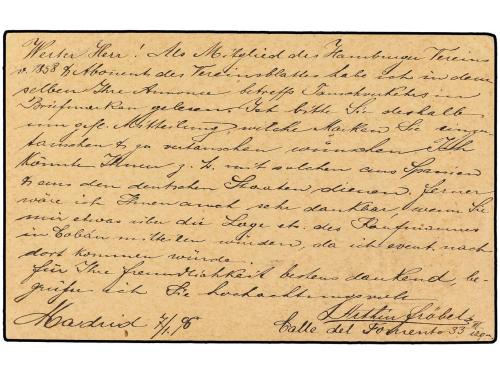 Werter Herr! Als Mitglied des Hamburger Vereins
v. 1858 & Abonent des Vereinsblattes habe ich in dem
selben Ihre Annonce betreffs Tauschverkehrs in
Briefmarken gelesen. Ich bitte Sie deshalb
um gefl. Mitteilung, welche Marken Sie einzu
tauschen & zu vertauschen wünschen. Ich
könnte Ihnen z. B. mit solchen aus Spanien
& aus den deutschen Staaten dienen. Ferner
wäre ich Ihnen auch sehr dankbar wenn Sie
mir etwas über die Lage etc. des Kaufmannes
in Cobán mitteilen würden, da ich event. nach
dort kommen würde.
Für Ihre Freundlichkeit bestens dankend, be-
grüße ich Sie hochachtungsvoll
Arthur Gröbel
Madrid 7/1. 96
Calle del Fomento 33